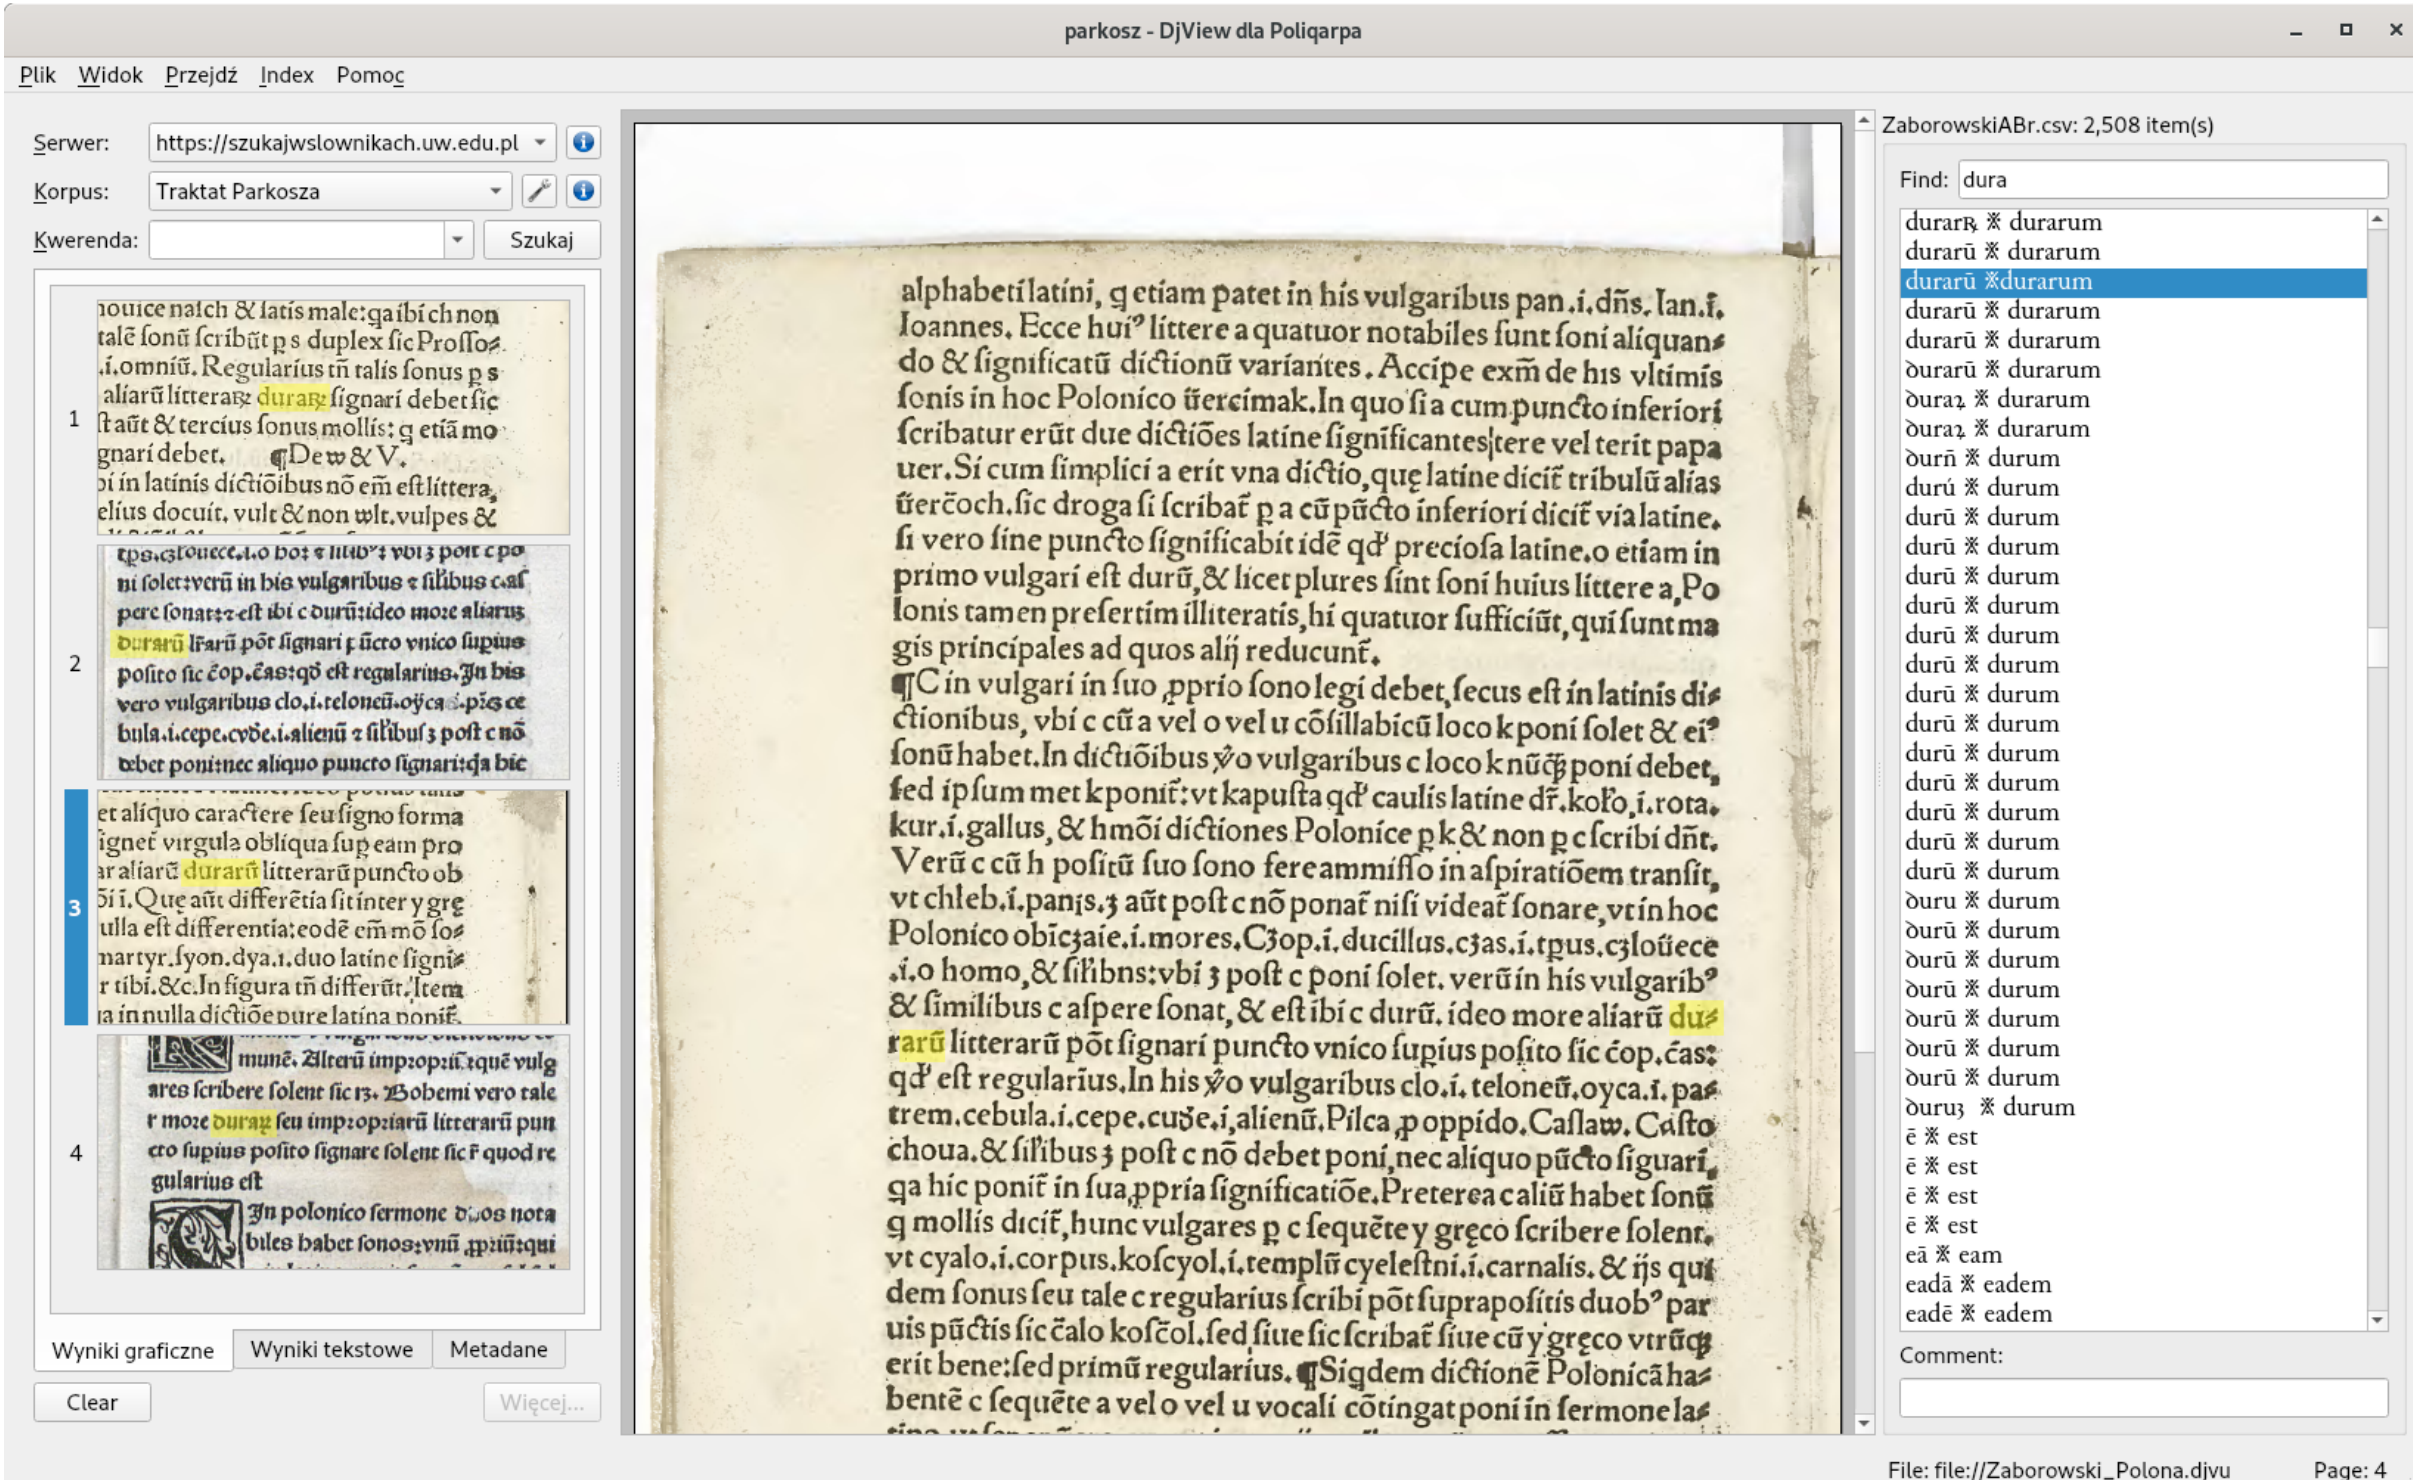 parkosz - DjView dla Poliqarpa
Plik Widok Przejdź Index Pomoc
Serwer: https://szukajwslownikach.uw.edu.pl
Korpus: Traktat Parkosza
Kwerenda: Szukaj
1
nouice naſch & ſatis male:qa ibi ch non
talē ſonū ſcribūt ꝑ s duplex ſic Proſſo⸗
.i.omniū. Regularius tñ talis ſonus ꝑ s
aliarū litteraꝝ duraꝝ ſignari debet ſic
ſt aūt & tercius ſonus mollis: q etiā mo
gnari debet. ¶De w & V.
bi in latinis dictiōibus nō em̄ eſt littera,
elius docuit. vult & non wlt.vulpes &
2
ni ſolet:verū in his vulgaribus ⁊ ſiłibus c.aſ
pere ſonat:⁊ eſt ibi c durū:ideo more aliarūꝫ
durarū lr̄arū pōt ſignari ꝑ ūcto vnico ſupius
poſito ſic ċop.ċas:qđ eſt regularius.In his
vero vulgaribus clo.i.teloneū.oÿca .i.
bula.i.cepe.cvđe.i.alienū ⁊ ſiłibuſ ꝫ poſt c nō
debet poni:nec aliquo puncto ſignari:qa hic
3
et aliquo caractere ſeu ſigno forma
ignet̄ virgula obliqua ſuꝑ eam pro
ar aliarū durarū litterarū puncto ob
ōi i. Quę aūt differētia ſit inter y grę
ulla eſt differentia:eodē em̄ mō ſo⸗
martyr.ſyon.dya.i.duo latine ſigni⸗
r tibi.&c.In figura tñ differūt. Item
ia in nulla dictiōe pure latina ponit̄.
4
munē. Alterū impropriū:quē vulg
ares ſcribere ſolent ſic rꝫ. Bohemi vero tale
r more duraꝝ ſeu impropriarū litterarū pun
cto ſupius poſito ſignare ſolent ſic ř quod re
gularius eſt
In polonico ſermone duos nota
biles habet ſonos:vnū ꝓpriū:qui
Wyniki graficzne Wyniki tekstowe Metadane
Clear Więcej...
alphabeti latini, q etiam patet in his vulgaribus pan.i.dñs. Ian.i.
Ioannes. Ecce huiꝰ littere a quatuor notabiles ſunt ſoni aliquan⸗
do & ſignificatū dictionū variantes. Accipe exm̄ de his vltimis
ſonis in hoc Polonico v̄ercimak.In quo ſi a cum puncto inferiori
ſcribatur erūt due dictiōes latine ſignificantes tere vel terit papa
uer. Si cum ſimplici a erit vna dictio, quę latine dicit̄ tribulū alias
v̄erc̄och. ſic droga ſi ſcribat̄ ꝑ a cū pūcto inferiori dicit̄ via latine.
ſi vero ſine puncto ſignificabit idē qđ precioſa latine. o etiam in
primo vulgari eſt durū, & licet plures ſint ſoni huius littere a, Po
lonis tamen preſertim illiteratis, hi quatuor ſufficiūt, qui ſunt ma
gis principales ad quos alij reducunt̄.
¶C in vulgari in ſuo ꝓprio ſono legi debet, ſecus eſt in latinis di⸗
ctionibus, vbi c cū a vel o vel u cōſillabicū loco k poni ſolet & eiꝰ
ſonū habet. In dictiōibus ꝟo vulgaribus c loco k nūꝗꝫ poni debet,
ſed ipſum met k ponit̄: vt kapuſta qđ caulis latine dr̄. koło, i.rota.
kur.i.gallus, & hmōi dictiones Polonice ꝑ k & non ꝑ c ſcribi dñt.
Verū c cū h poſitū ſuo ſono fere ammiſſo in aſpiratiōem tranſit,
vt chleb.i.panis.ꝫ aūt poſt c nō ponat̄ niſi videat̄ ſonare, vt in hoc
Polonico obicꝫaie.i.mores. Cꝫop.i.ducillus. cꝫas.i.tp̄us. cꝫloūece
.i.o homo, & ſiłibns: vbi ꝫ poſt c poni ſolet. verū in his vulgaribꝰ
& ſimilibus c aſpere ſonat, & eſt ibi c durū. ideo more aliarū du⸗
rarū litterarū pōt ſignari puncto vnico ſupius poſito ſic ċop. ċas:
qđ eſt regularius. In his ꝟo vulgaribus clo.i. teloneū. oyca.i. pa⸗
trem. cebula.i.cepe. cuđe.i, alienū. Pilca ꝓ oppido. Caſlaw. Caſto
choua. & ſiłibus ꝫ poſt c nō debet poni, nec aliquo pūcto ſiguari,
qa hic ponit̄ in ſua ꝓpria ſignificatiōe. Preterea c aliū habet ſonū
q mollis dicit̄, hunc vulgares ꝑ c ſequēte y gręco ſcribere ſolent.
vt cyalo.i.corpus. koſcyol.i.templū cyeleſtni.i.carnalis. & ijs qui
dem ſonus ſeu tale c regularius ſcribi pōt ſuprapoſitis duobꝰ par
uis pūctis ſic c̈alo koſc̈ol. ſed ſiue ſic ſcribat̄ ſiue cū y gręco vtrūqꝫ
erit bene: ſed primū regularius. ¶Siqdem dictionē Polonicā ha⸗
bentē c ſequēte a vel o vel u vocali cōtingat poni in ſermone la⸗
ZaborowskiABr.csv: 2,508 item(s)
Find: dura
durarꝝ ※ durarum
durarū ※ durarum
durarū ※durarum
durarū ※ durarum
durarū ※ durarum
ꝺurarū ※ durarum
ꝺuraꝝ ※ durarum
ꝺuraꝝ ※ durarum
ꝺurñ ※ durum
durú ※ durum
durū ※ durum
durū ※ durum
durū ※ durum
durū ※ durum
durū ※ durum
durū ※ durum
durū ※ durum
durū ※ durum
durū ※ durum
durū ※ durum
durū ※ durum
durū ※ durum
durū ※ durum
ꝺuru ※ durum
ꝺurū ※ durum
ꝺurū ※ durum
ꝺurū ※ durum
ꝺurū ※ durum
ꝺurū ※ durum
ꝺurū ※ durum
ꝺuruꝫ ※ durum
ē ※ est
ē ※ est
ē ※ est
ē ※ est
eā ※ eam
eadā ※ eadem
eadē ※ eadem
Comment:
File: file://Zaborowski_Polona.djvu Page: 4